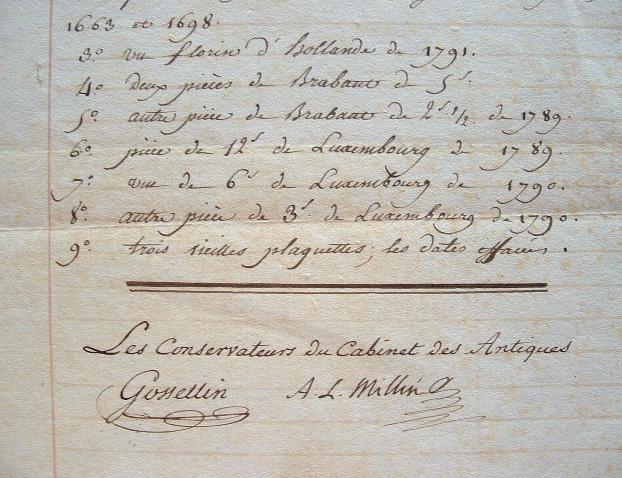 1663 et 1698.
3.° un florin d'hollande de 1791.
4.° deux pièces de Brabant de 5ˢ.
5.° autre pièce de Brabant de 2ˢ 1/2 de 1789.
6.° pièce de 12ˢ de Luxembourg de 1789.
7.° une de 6ˢ de Luxembourg de 1790.
8.° autre pièce de 3ˢ de Luxembourg de 1790.
9.° trois vieilles plaquettes; les dates effacées.
Les Conservateurs du Cabinet des Antiques
Gossellin A. L. Millin